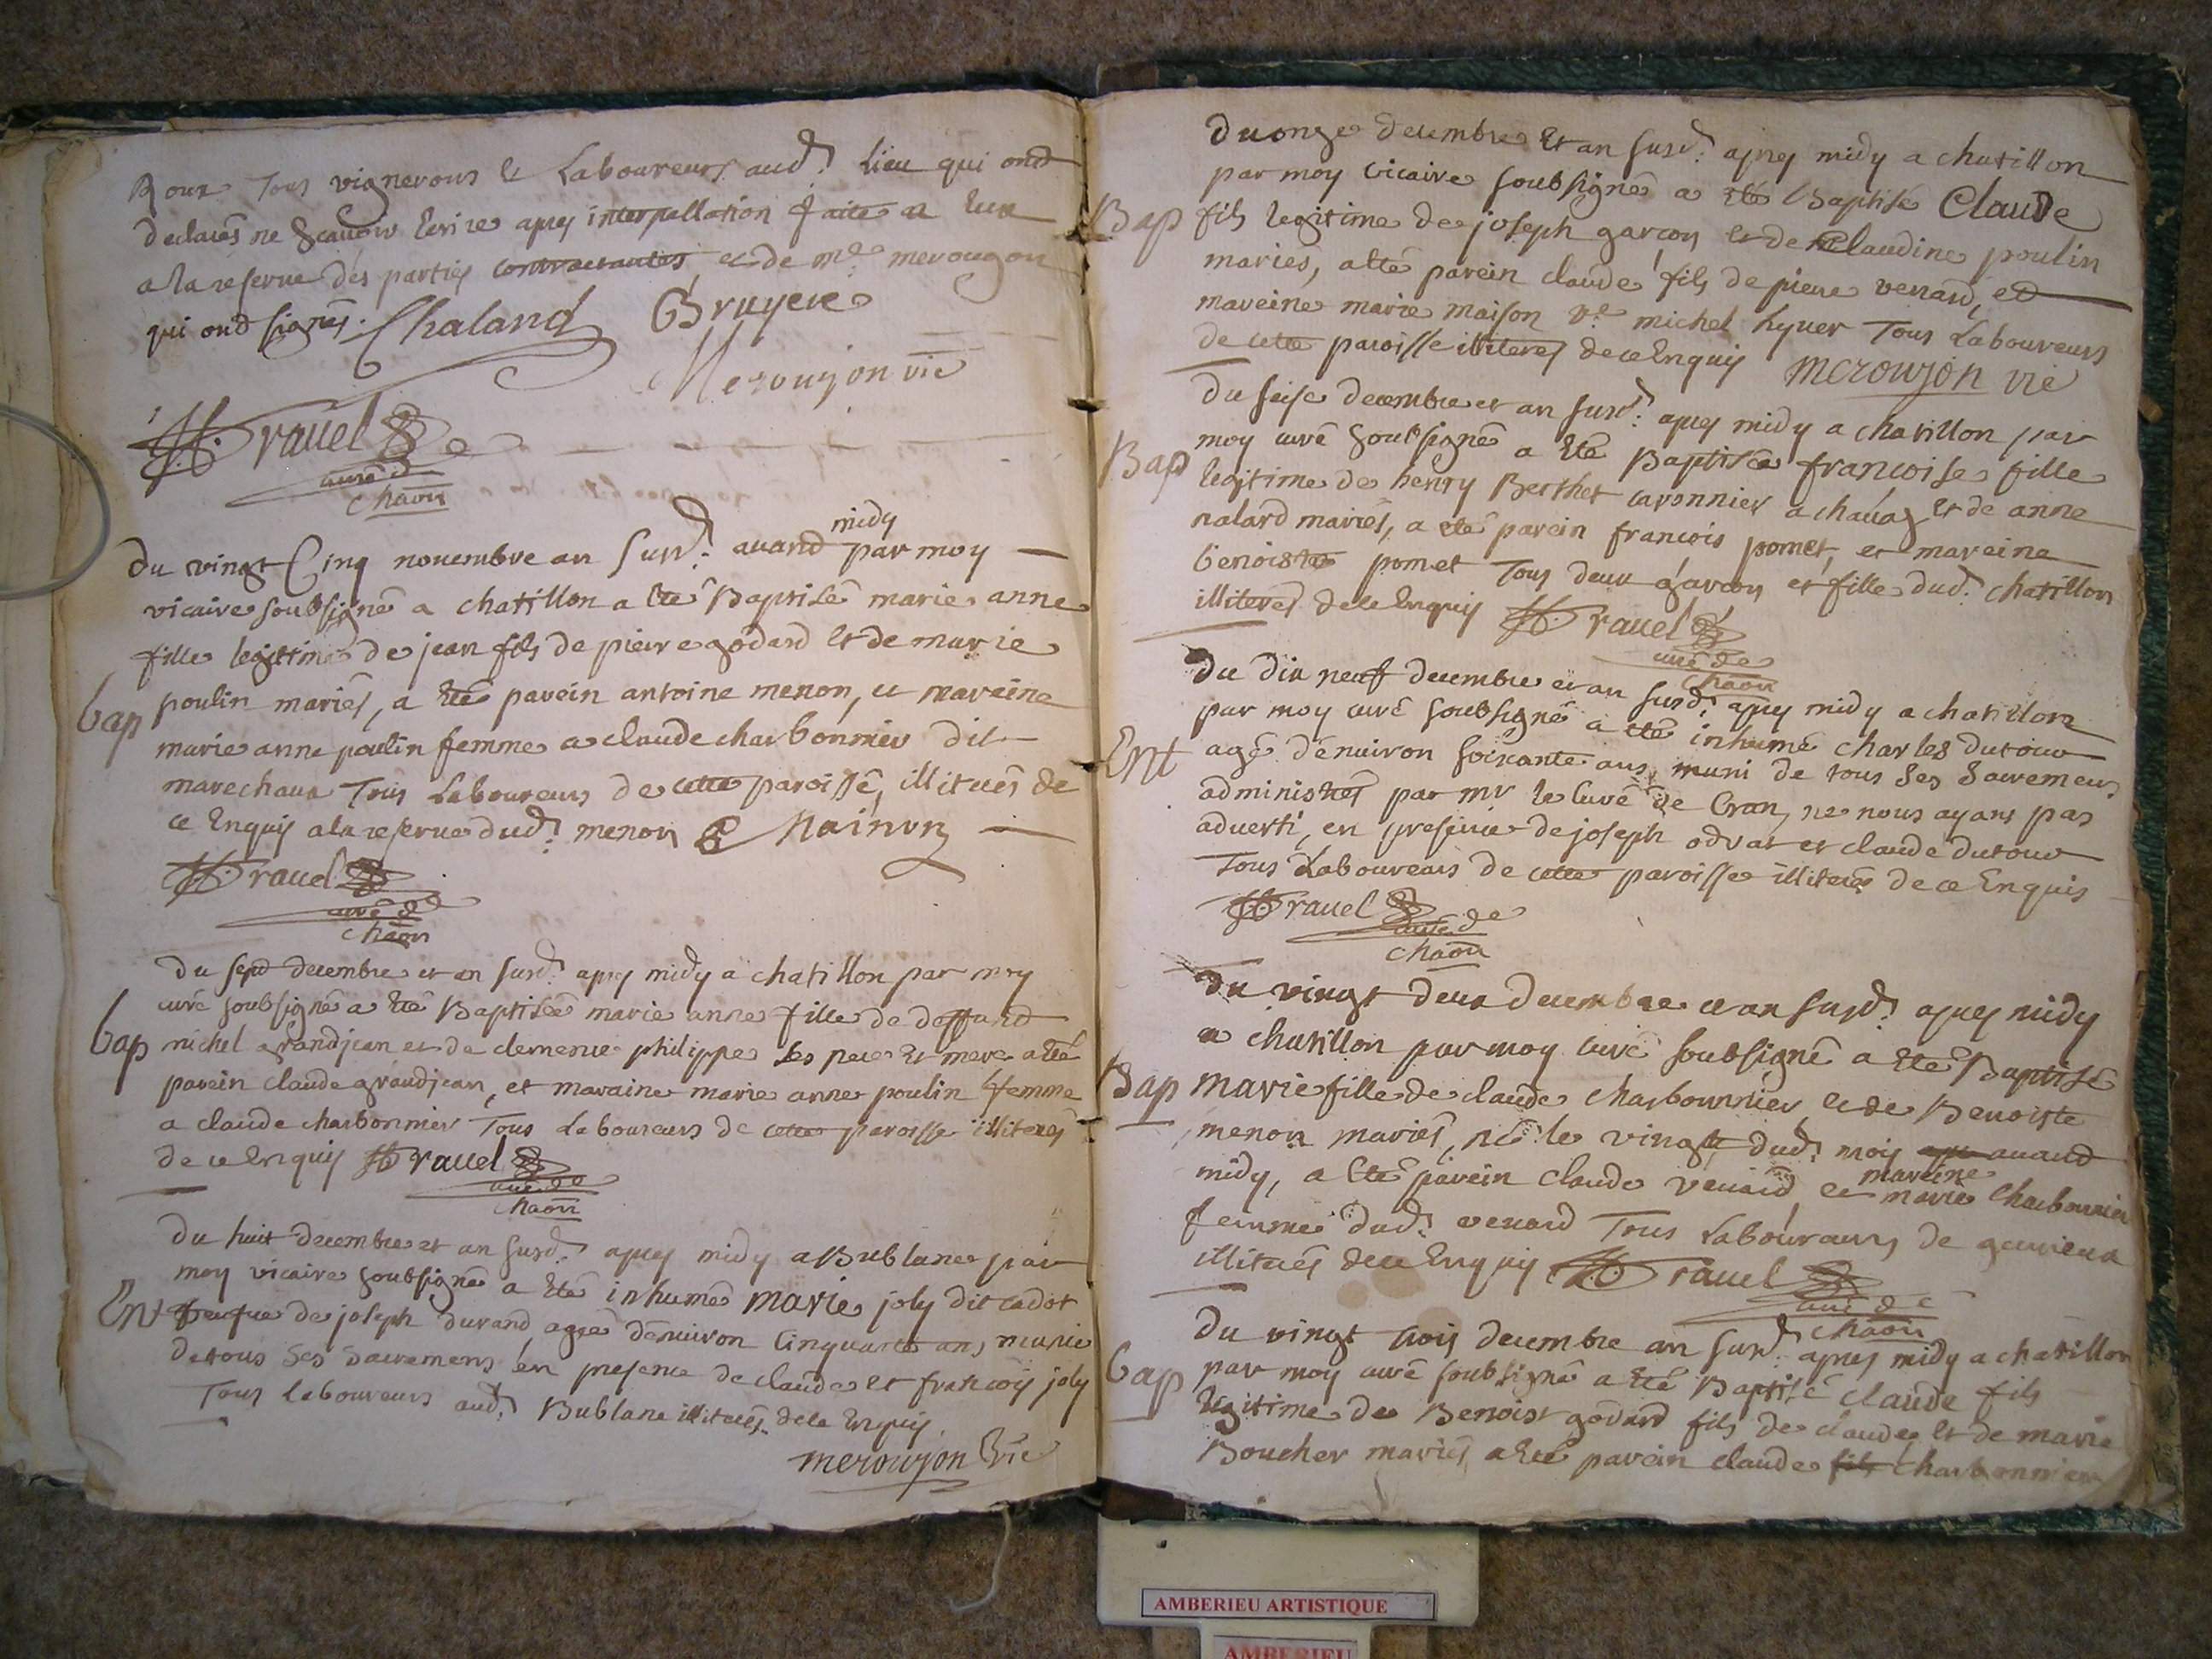 Roux Tous vignerons & Laboureurs aud.t Lieu qui ond
declarés ne scauoir Ecrire apres interpellation faitte a Eux
a la reserue des parties contractantes, et de m.e merougon
qui ond signés. Chaland Bruyere
Merougon vic
H. rauel
curé de
chaōn
midy
Du vingt Cinq nouembre an susd.t auand par moy
vicaire soubsigné a chatillon a eté Baptisé marie anne
fille legitime de jean fils de pierre godard et de marie
bap
poulin mariés, a eté parein antoine menon, et mareine
marie anne poulin femme a claude charbonnier dit
marechaux Tous Laboureurs de cette paroisse, illiterés de
ce Enquis a la reserue dud.t menon Mainon
H. rauel
curé de
chaōn
du sept decembre et an susd.t apres midy a chatillon par moy
curé soubsigné a eté Baptisée marie anne fille de deffund
bap
michel grandjean et de clemence philippe ses pere et mere a eté
parein claude grandjean, et maraine marie anne poulin femme
a claude charbonnier Tous Laboureurs de cette paroisse illiterés
de ce Enquis H. rauel
curé de
chaōn
du huit decembre et an susd.t apres midy a Bublane par
moy vicaire soubsigné a eté inhumée marie joly dit cadot
Ent
veufue de joseph durand agée d'enuiron Cinquante ans, munie
de tous ses sacremens en presence de claude et francois joly
Tous laboureurs aud.t Bublane illiterés de ce Enquis
merougon vic
du onze decembre et an susd.t apres midy a chatillon
par moy vicaire soubsigné a eté Baptisé Claude
Bap
fils legitime de joseph garçon et de Claudine poulin
mariés, a eté parein claude fils de pierre venard, et
mareine marie maison v.e michel hyuer Tous Laboureurs
de cette paroisse illiteres de ce Enquis merougon vic
du seise decembre et an susd.t apres midy a chatillon par
moy curé soubsigné a eté Baptisée francoise fille
Bap
legitime de henry Berthet et de anne
nalard mariés, a eté parein francois pomet, et mareine
benoiste pomet Tous deux garcon et fille dud.t chatillon
illiteres de ce Enquis H. rauel
curé de
chaōn
du dix neuf decembre et an susd.t apres midy a chatillon
par moy curé soubsigné a eté inhumé charles dutour
Ent
agé d'enuiron soixante ans, muni de tous ses sacremens
administrés par m.r le Curé de Cran, ne nous ayans pas
aduerti, en presence de joseph odrat et claude dutour
Tous Laboureurs de cette paroisse illiterés de ce Enquis
H. rauel
curé de
chaōn
du vingt deux decembre et an susd.t apres midy
a chatillon par moy curé soubsigné a eté Baptisé
Bap
Marie fille de claude charbonnier et de Benoiste
menon mariés, né le vingt dud.t mois auand
mareine
midy, a eté parein Claude venard et marie charbonnier
femme dud.t venard Tous Laboureurs de
illiterés de ce Enquis H. rauel
curé de
chaōn
Du vingt trois decembre an susd.t apres midy a chatillon
par moy curé soubsigné a eté Baptisé claude fils
bap
legitime de Benoist godard fils de claude, et de marie
Boucher mariés a eté parein claude fils charbonnier
AMBERIEU ARTISTIQUE
AMBERIEU